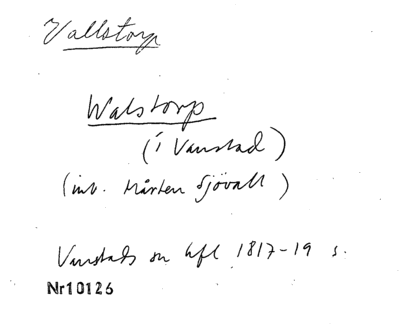 Vallstorp
Walstorp
(i Vanstad)
(inb. Mårten Sjövall)
Vanstads sn hfl 1817-19 s.
Nr10126